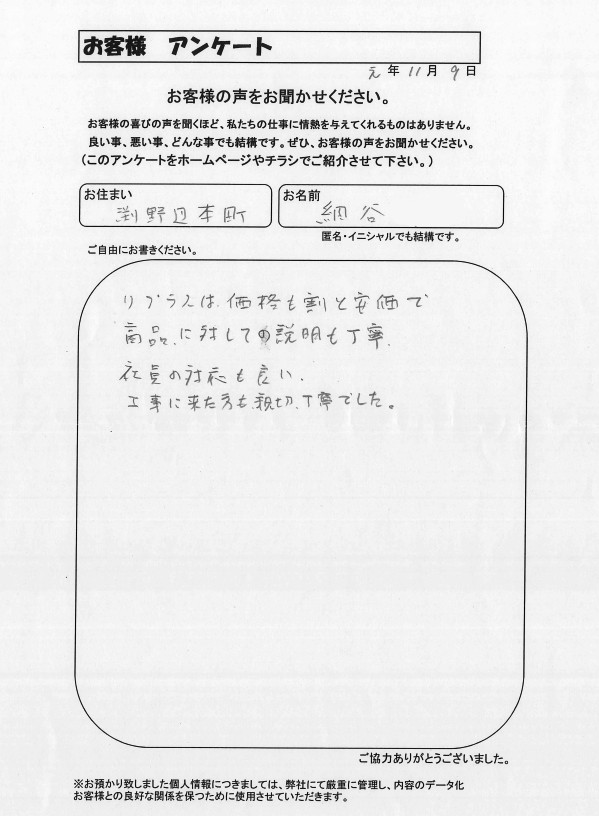 お客様 アンケート
え年11月9日
お客様の声をお聞かせください。
お客様の喜びの声を聞くほど、私たちの仕事に情熱を与えてくれるものはありません。
良い事、悪い事、どんな事でも結構です。ぜひ、お客様の声をお聞かせください。
(このアンケートをホームページやチラシでご紹介させて下さい。)
お住まい
渕野辺本町
お名前
細谷
匿名・イニシャルでも結構です。
ご自由にお書きください。
リプラスは、価格も割と安価で
商品、に対しての説明も丁寧、
社員の対応も良い、
工事に来た方も、親切、丁寧でした。
ご協力ありがとうございました。
※お預かり致しました個人情報につきましては、弊社にて厳重に管理し、内容のデータ化
お客様との良好な関係を保つために使用させていただきます。